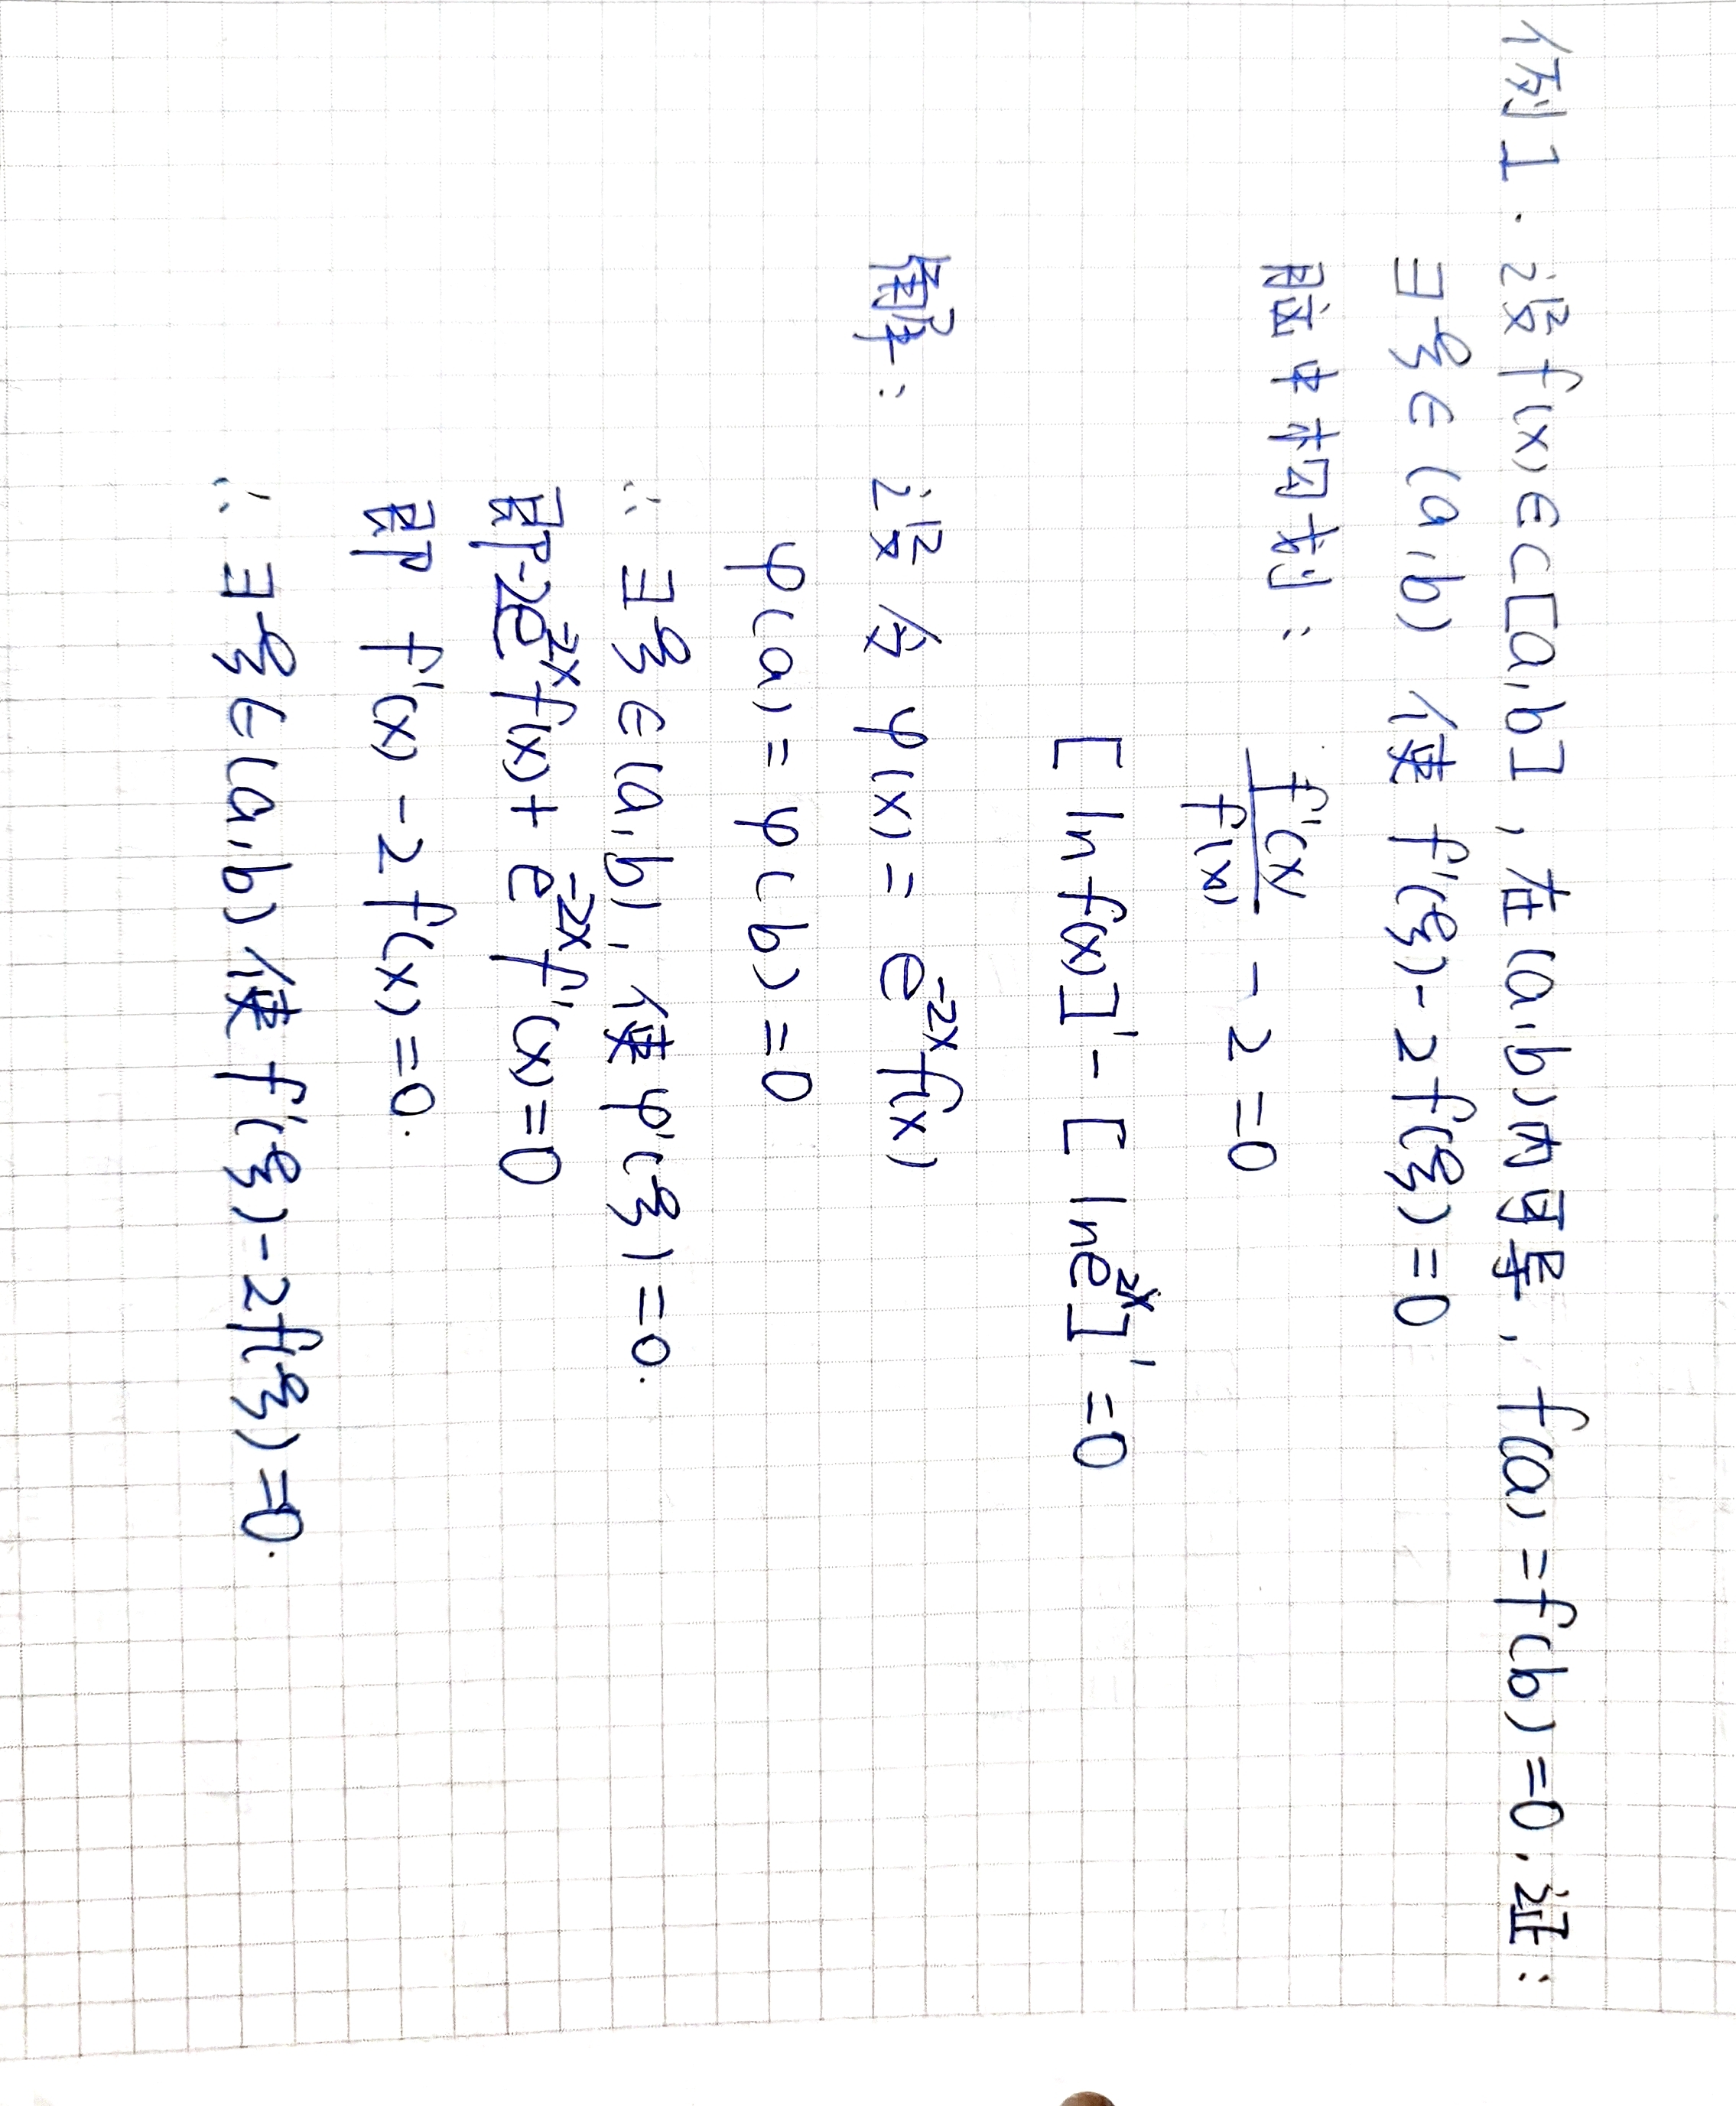 例1. 设f(x)∈C[a,b],在(a,b)内可导,f(a)=f(b)=0.证:
∃ξ∈(a,b) 使 f'(ξ)-2f(ξ)=0
脑中构划: f'(x)/f(x) - 2 = 0
[ln f(x)]' - [ln e^{2x}]' = 0
解: 设 令 φ(x) = e^{-2x}f(x)
φ(a) = φ(b) = 0
∴ ∃ξ∈(a,b), 使φ'(ξ)=0.
即-2e^{-2x}f(x) + e^{-2x}f'(x)=0
即 f'(x) - 2f(x) = 0.
∴ ∃ξ∈(a,b) 使 f'(ξ)-2f(ξ)=0.